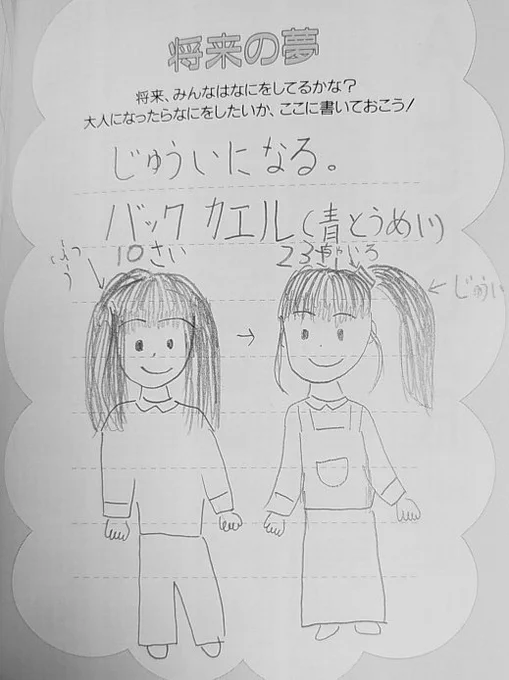 将来の夢
将来、みんなはなにをしてるかな？
大人になったらなにをしたいか、ここに書いておこう！
じゅういになる。
バック カエル(青とうめい)
ふつう
10さい
23さい
ちゃいろ
じゅうい